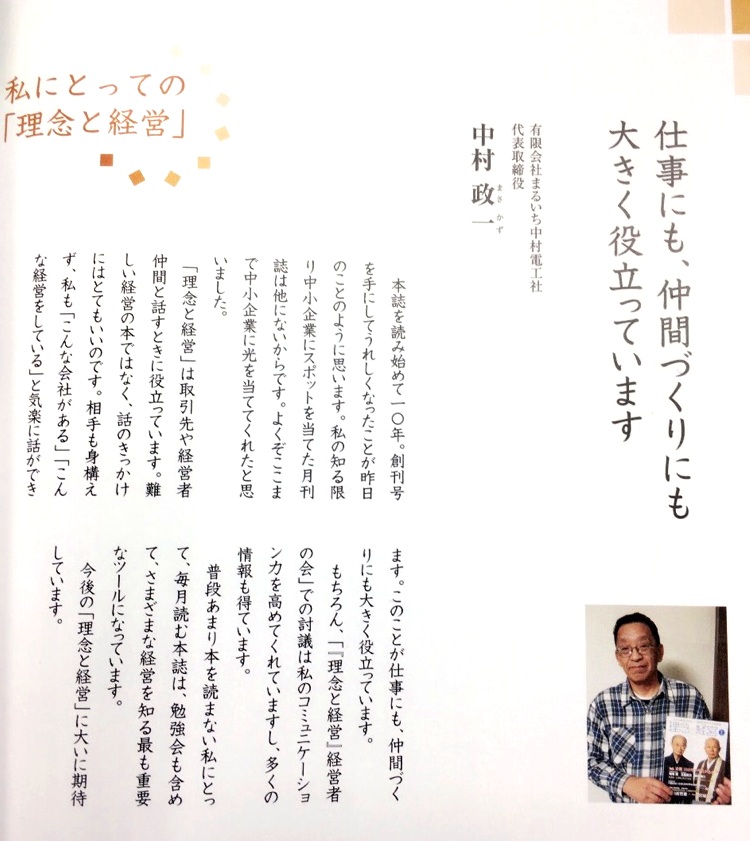 私にとっての
「理念と経営」
仕事にも、仲間づくりにも
大きく役立っています
有限会社まるいち中村電工社
代表取締役
中村 政一
まさ かず
本誌を読み始めて一〇年。創刊号
を手にしてうれしくなったことが昨日
のことのように思います。私の知る限
り中小企業にスポットを当てた月刊
誌は他にないからです。よくぞここま
で中小企業に光を当ててくれたと思
いました。
「理念と経営」は取引先や経営者
仲間と話すときに役立っています。難
しい経営の本ではなく、話のきっかけ
にはとてもいいのです。相手も身構え
ず、私も「こんな会社がある」「こん
な経営をしている」と気楽に話ができ
ます。このことが仕事にも、仲間づく
りにも大きく役立っています。
もちろん、「『理念と経営』経営者
の会」での討議は私のコミュニケーショ
ン力を高めてくれていますし、多くの
情報も得ています。
普段あまり本を読まない私にとっ
て、毎月読む本誌は、勉強会も含め
て、さまざまな経営を知る最も重要
なツールになっています。
今後の「理念と経営」に大いに期待
しています。
理念と経営